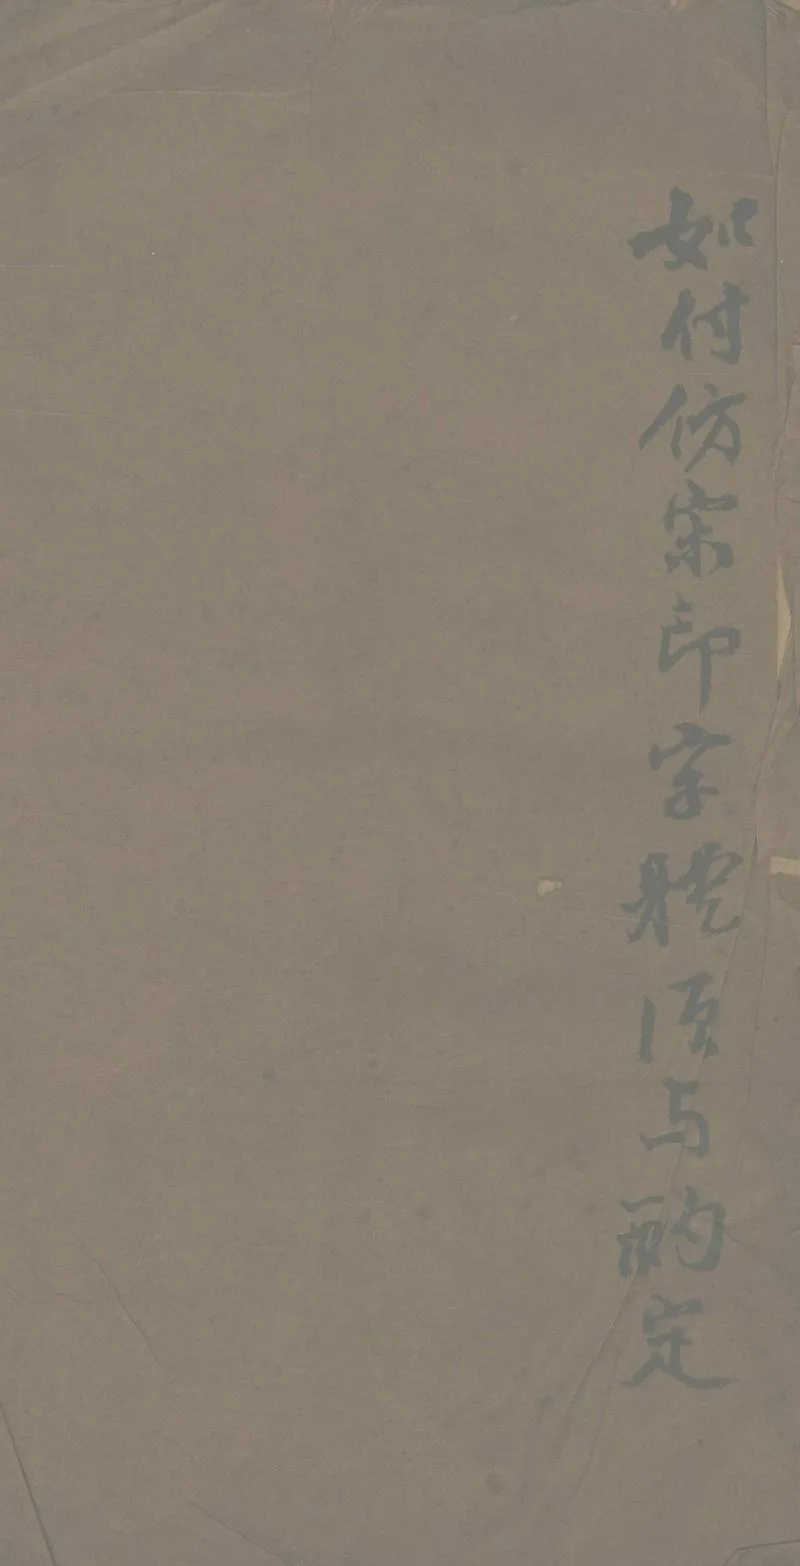 如付仿宋印字體須与酌定